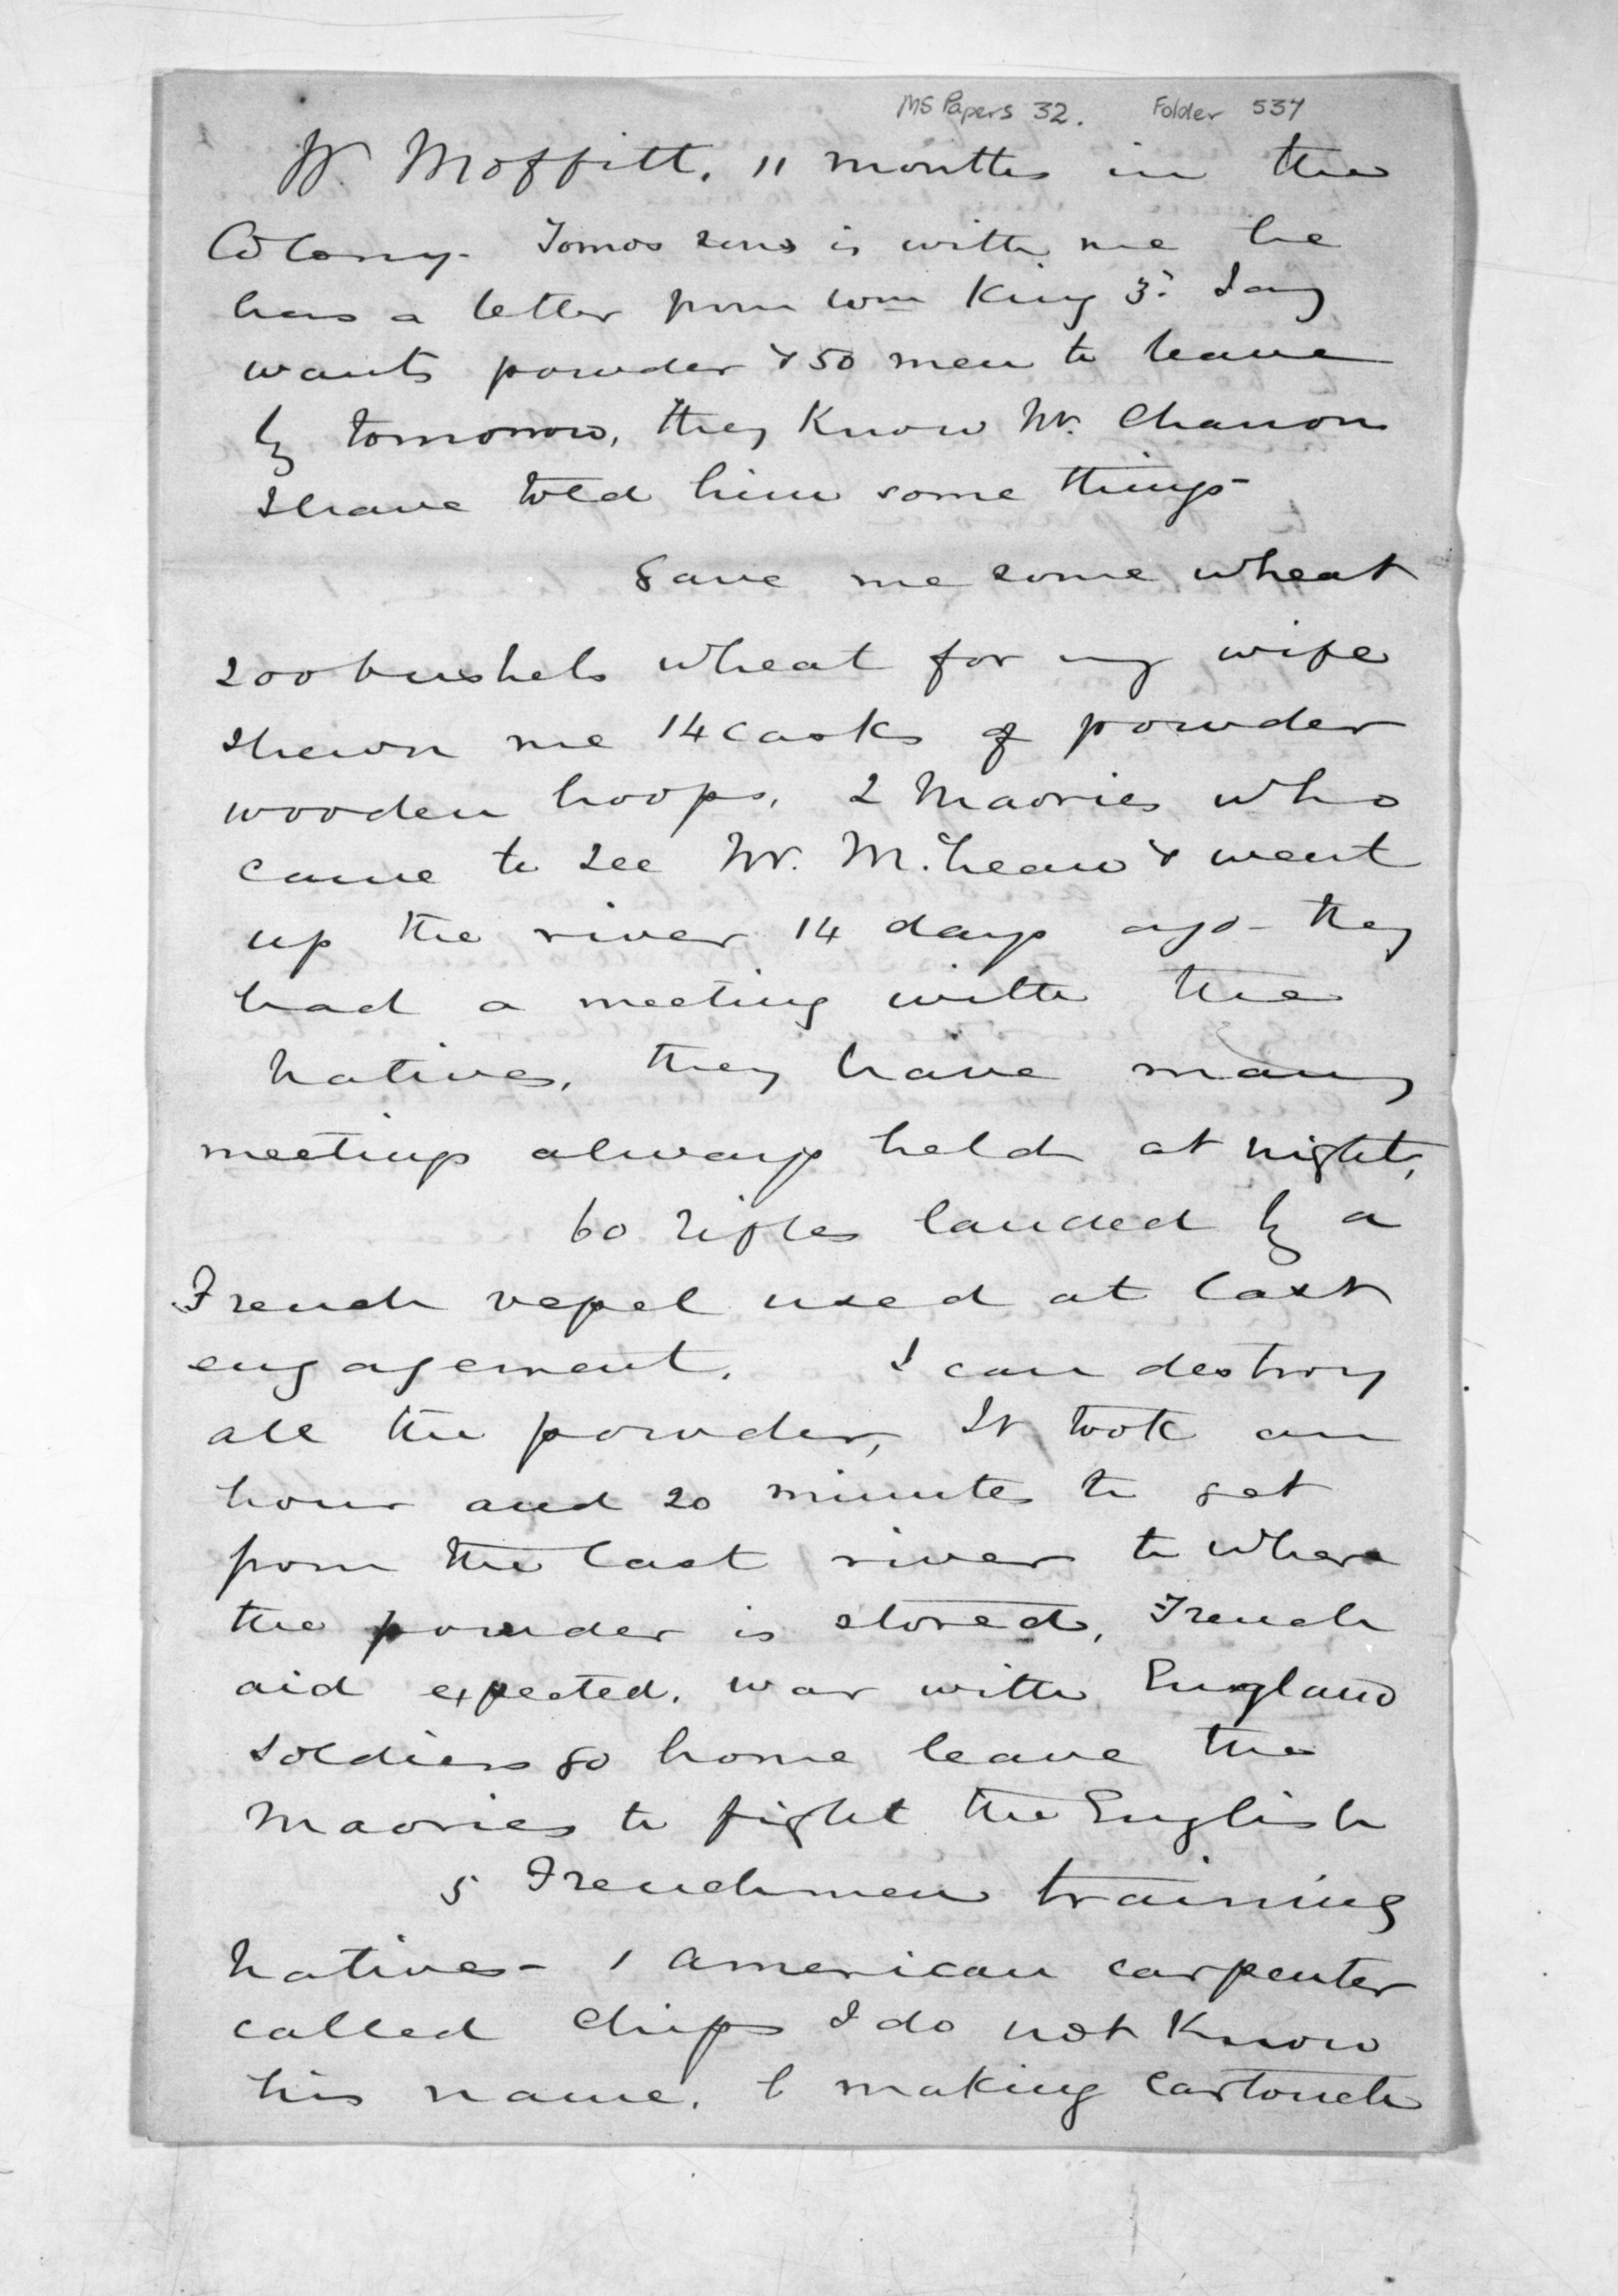 MS Papers 32. Folder 537
W. Moffitt. 11 months in the
Colony. is with me he
has a letter from Wm King 3d. Jany
wants powder & 50 men to leave
by tomorrow, they know Mr.
I have told him some things
Gave me some wheat
200 bushels wheat for my wife
shewn me 14 casks of powder
wooden hoops. 2 Maories who
came to see Mr. McLean & went
up the river 14 days ago - they
had a meeting with the
natives, they have many
meetings always held at night,
60 rifles landed by a
French vessel used at last
engagement. I can destroy
all the powder, It took an
hour and 20 minutes to get
from the last river to where
the powder is stored, French
aid expected. war with England
soldiers go home leave the
Maories to fight the English
5 Frenchmen training
natives - 1 American carpenter
called Chips I do not know
his name. making cartouch